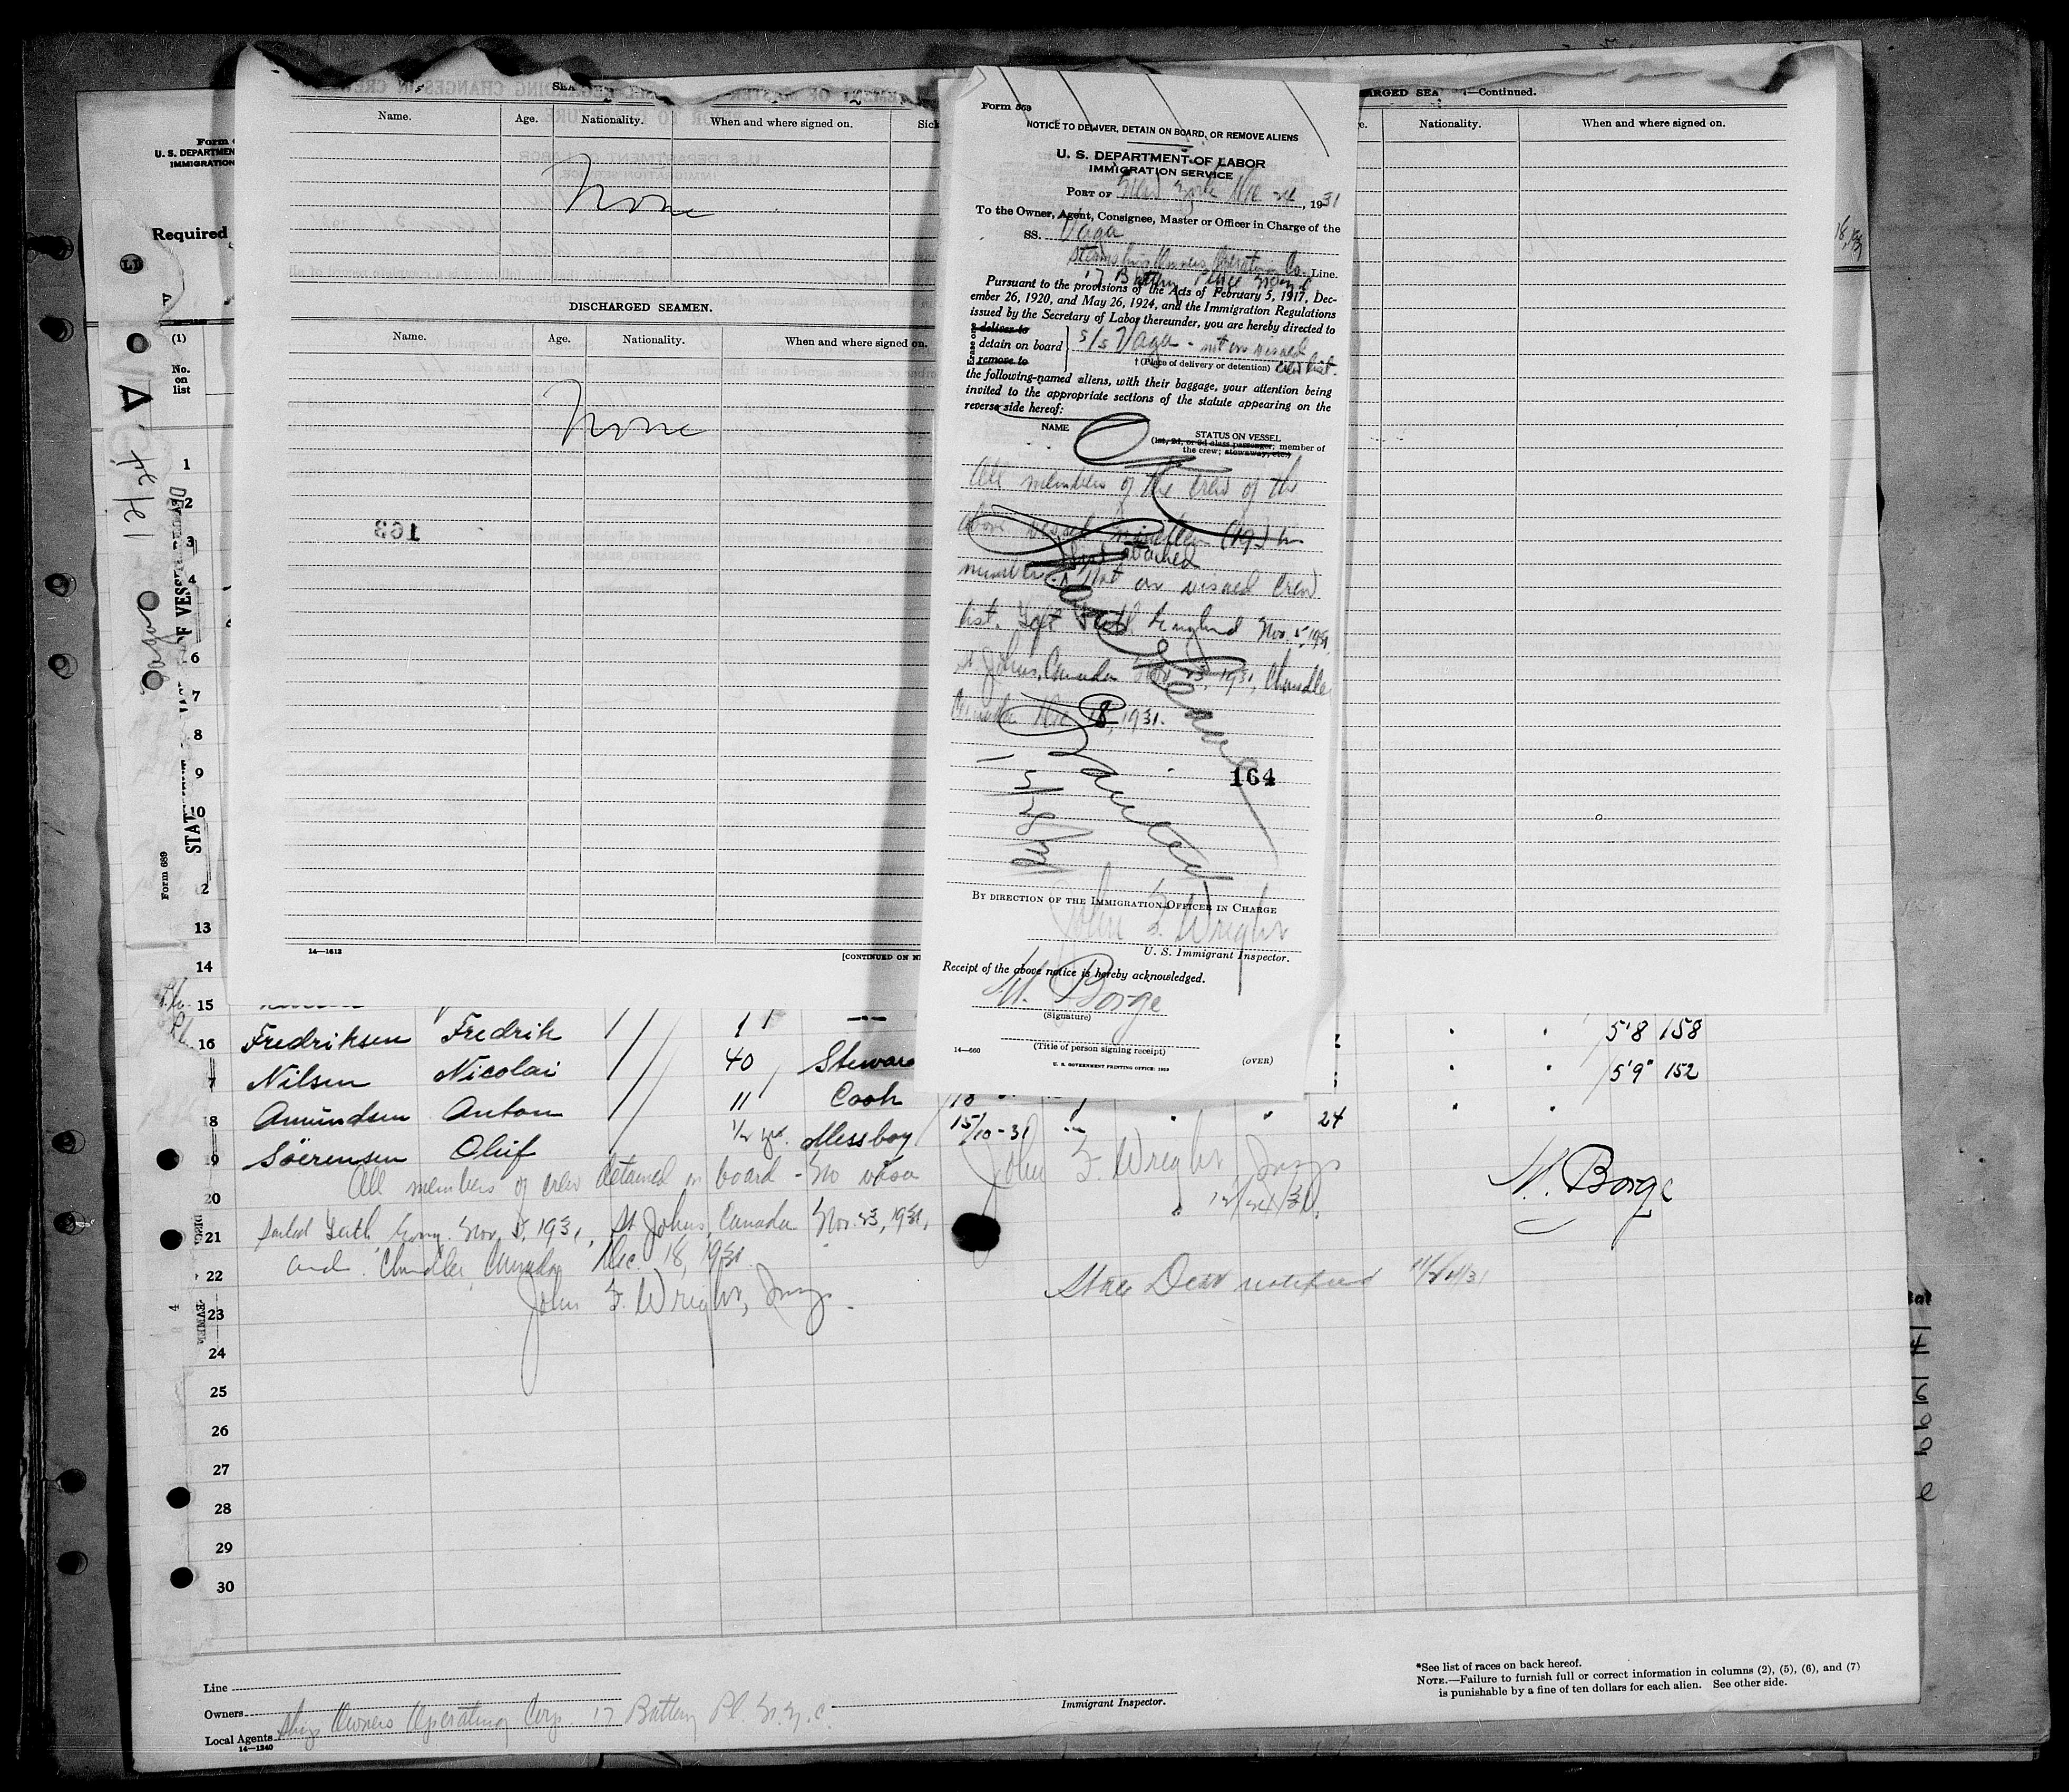 SEA
Name. Age. Nationality. When and where signed on. Sick
None
DISCHARGED SEAMEN.
Name. Age. Nationality. When and where signed on.
None
163
14—1612
[CONTINUED ON
ARGED SEA —Continued.
Nationality. When and where signed on.
Form
U. S. DEPARTMEN
IMMIGRATION
Required
(1)
No.
on
list
12/24
Form 689
Form 569
NOTICE TO DELIVER, DETAIN ON BOARD, OR REMOVE ALIENS
U. S. DEPARTMENT OF LABOR
IMMIGRATION SERVICE
PORT OF New York Dec 24, 1931
To the Owner, Agent, Consignee, Master or Officer in Charge of the
SS. Vaga
Steamship Owners Operating Co. Line.
17 Battery Place N.Y.C.
Pursuant to the provisions of the Acts of February 5, 1917, Dec-
ember 26, 1920, and May 26, 1924, and the Immigration Regulations
issued by the Secretary of Labor thereunder, you are hereby directed to
Erase one
deliver to
detain on board
remove to
s/s Vaga - not on visaed
crew list.
† (Place of delivery or detention)
the following-named aliens, with their baggage, your attention being
invited to the appropriate sections of the statute appearing on the
reverse side hereof:
NAME
STATUS ON VESSEL
(1st, 2d, or 3d class passenger; member of
the crew; stowaway, etc.)
All members of the crew of the
above vessel nineteen (19) in
list attached
number. Not on visaed crew
list. Left Leith England Nov. 5, 1931,
St Johns, Canada Nov. 23, 1931, Chandler
Canada Dec 18, 1931.
164
BY DIRECTION OF THE IMMIGRATION OFFICER IN CHARGE
John F. Wright
U. S. Immigrant Inspector.
Receipt of the above notice is hereby acknowledged.
M. Borge
(Signature)
(Title of person signing receipt)
14—660
(OVER)
U. S. GOVERNMENT PRINTING OFFICE: 1929
1
2
3
4
6
7
8
9
10
2
13
14
15
16 Fredriksen Fredrik 11 5'8 158
7 Nilsen Nicolai 40 Steward 5'9" 152
8 Amundsen Anton 11 Cook 18
9 Söerensen Oluf 1/2 yr. Messboy 15/10-31 24
All members of crew detained on board - No visa John F. Wright, Insp M. Borge
12/24/31.
20
21 sailed Leith Eng. Nov. 5, 1931, St Johns, Canada Nov. 23, 1931,
22 and Chandler, Canada Dec. 18, 1931.
State Dept notified
23 John F. Wright, Insp.
24
25
26
27
28
29
30
Line
Owners
Local Agents Ship Owners Operating Corp 17 Battery Pl. N.Y.C.
14—1240
Immigrant Inspector.
*See list of races on back hereof.
NOTE.—Failure to furnish full or correct information in columns (2), (5), (6), and (7)
is punishable by a fine of ten dollars for each alien. See other side.